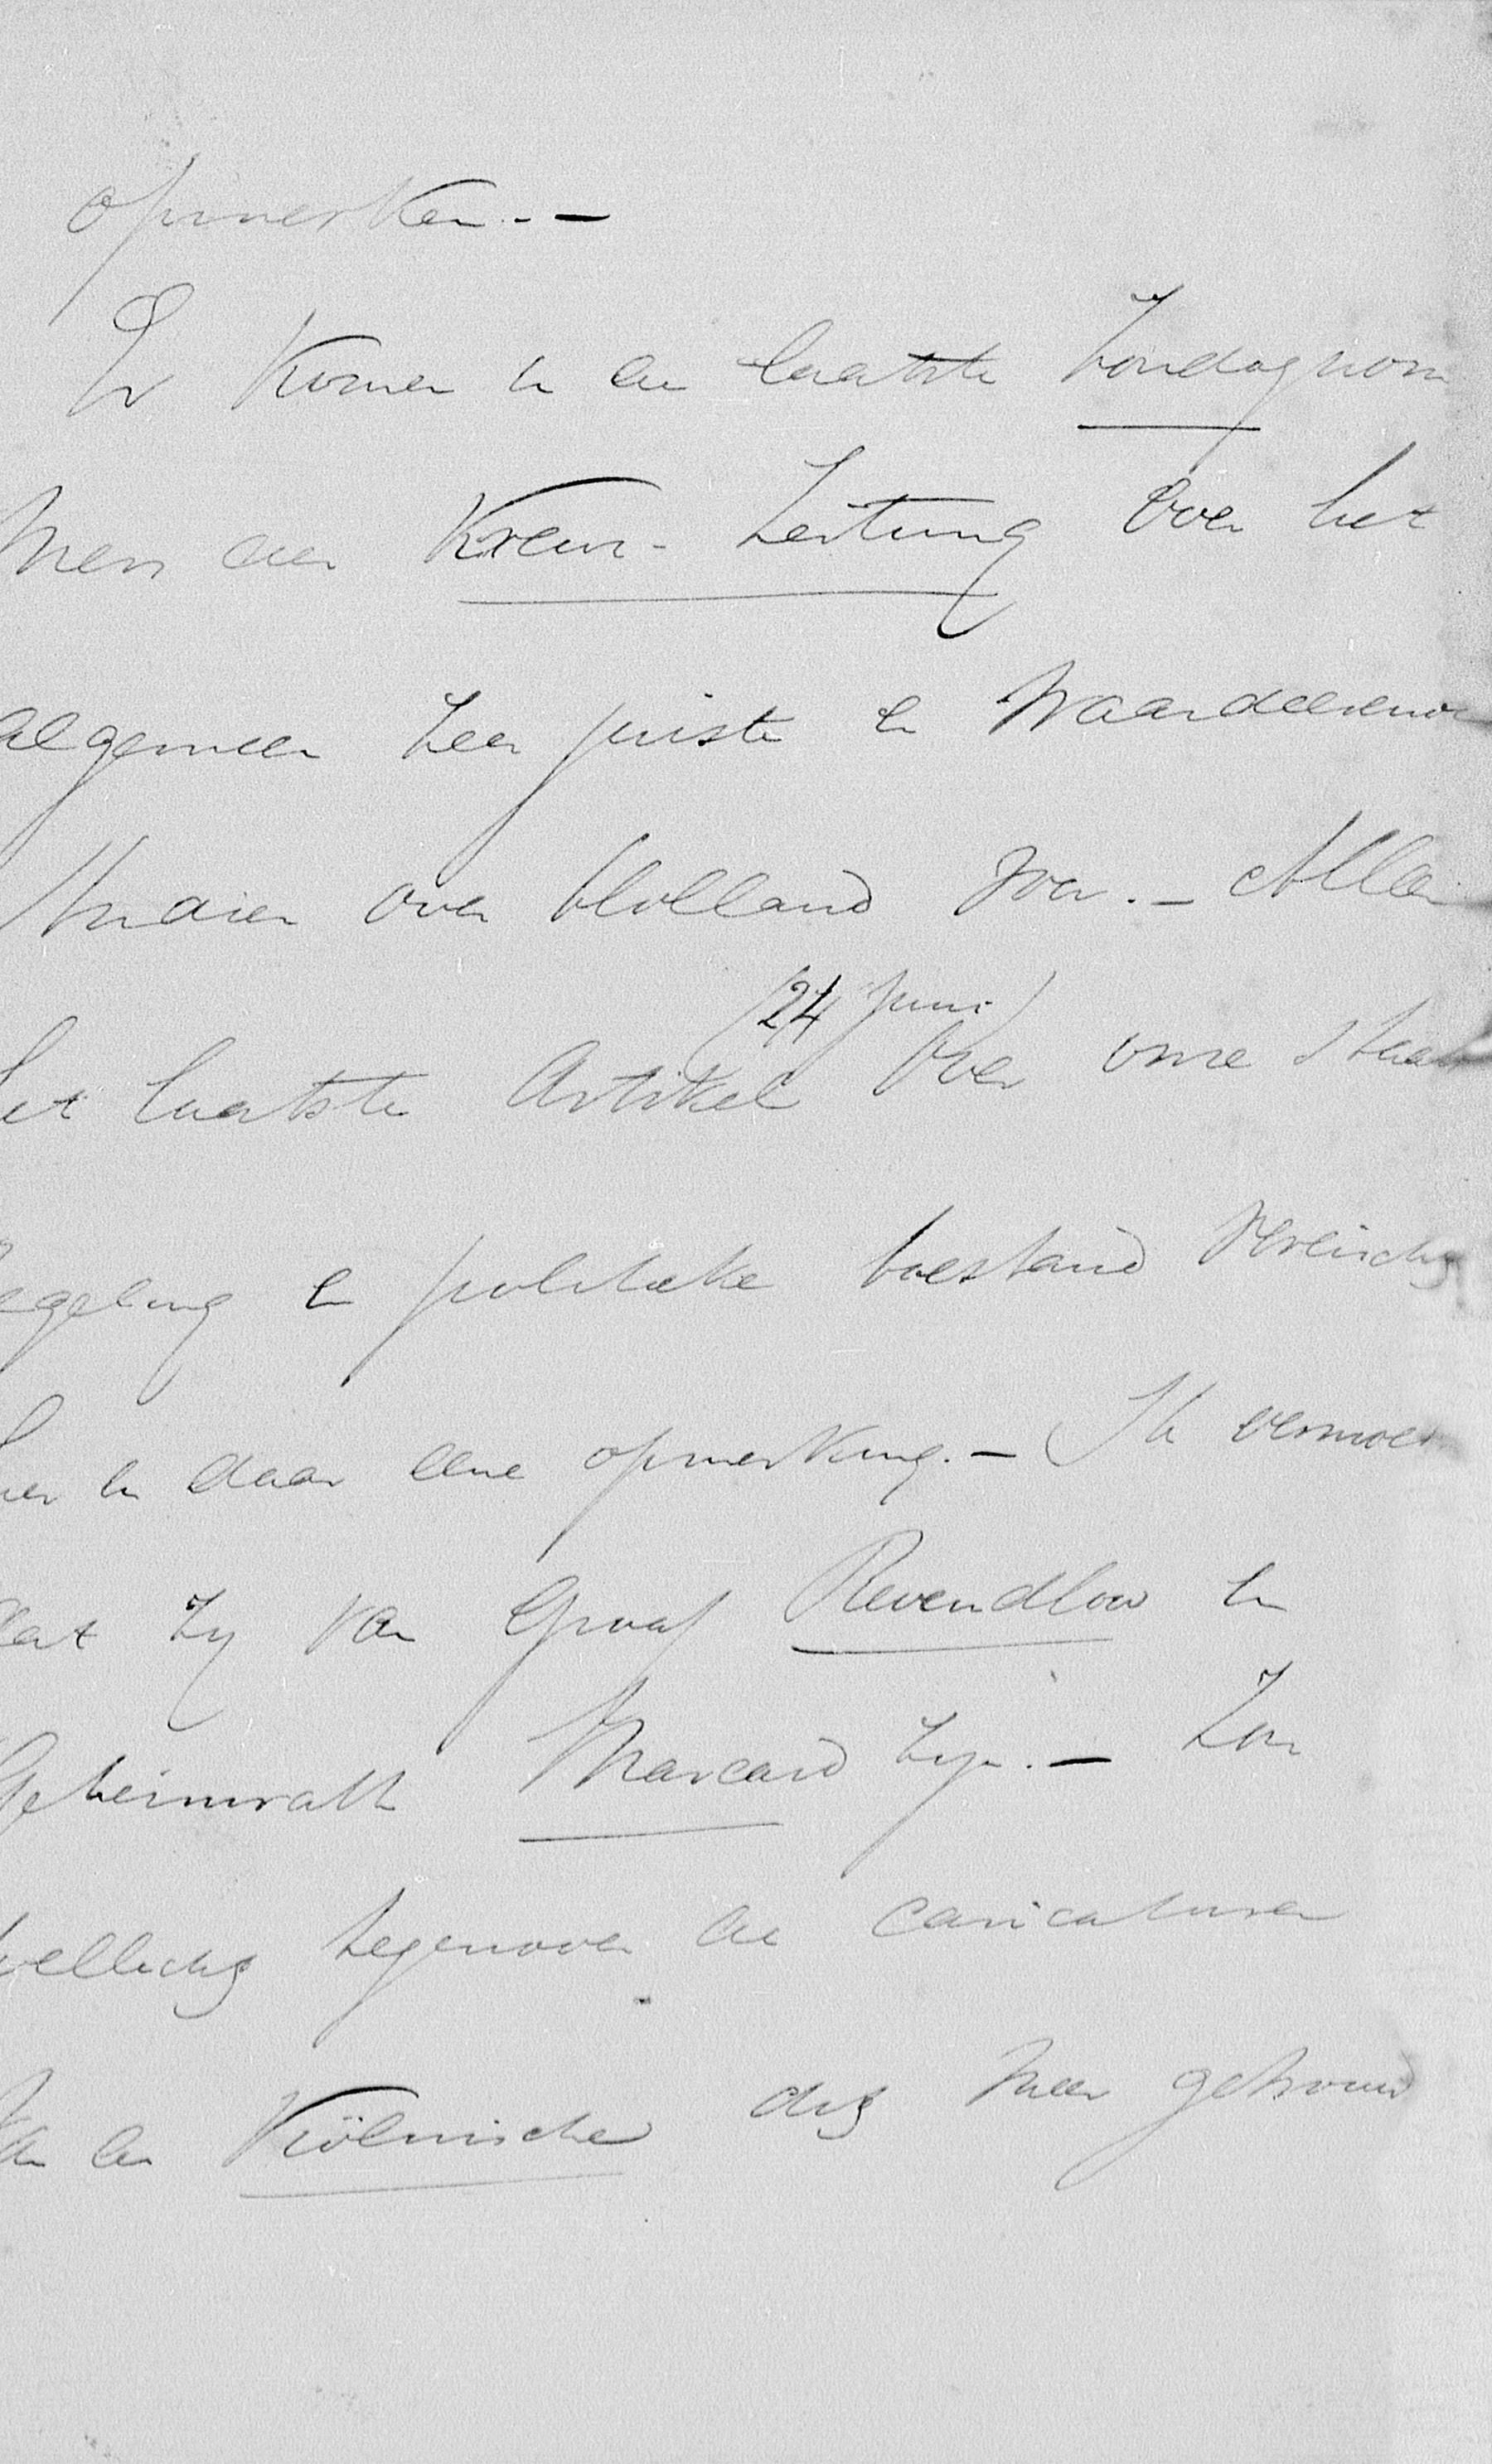 opmerken. —
Er komen in de laatste Zondagnom
mers der Kreuz-Zeitung over het
algemeen zeer juiste en waardeerende
studien over Holland voor. — Alleen
(24 Juni)
het laatste Artikel over onze Staats
regeling en politieke toestand vereischt
hier en daar eene opmerking. — Ik vermoed
dat zij van Graaf Revendlow en
Geheimrath Marcard zijn. — Zou
wellicht tegenover de caricaturen
in de Kölnische dit meer getrouw